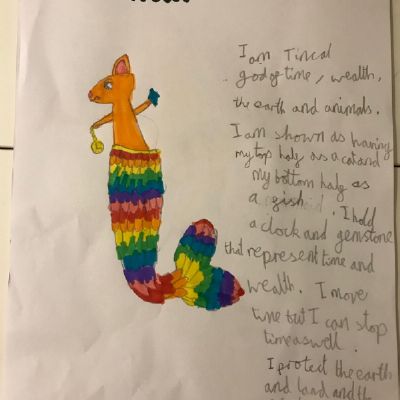 I am Tincal
god of time, wealth,
the earth and animals.
I am shown as having
my top half as a cat and
my bottom half as
a fish. I hold
a clock and gemstone
that represent time and
wealth. I move
time but I can stop
time aswell.
I protect the earth
and land and the